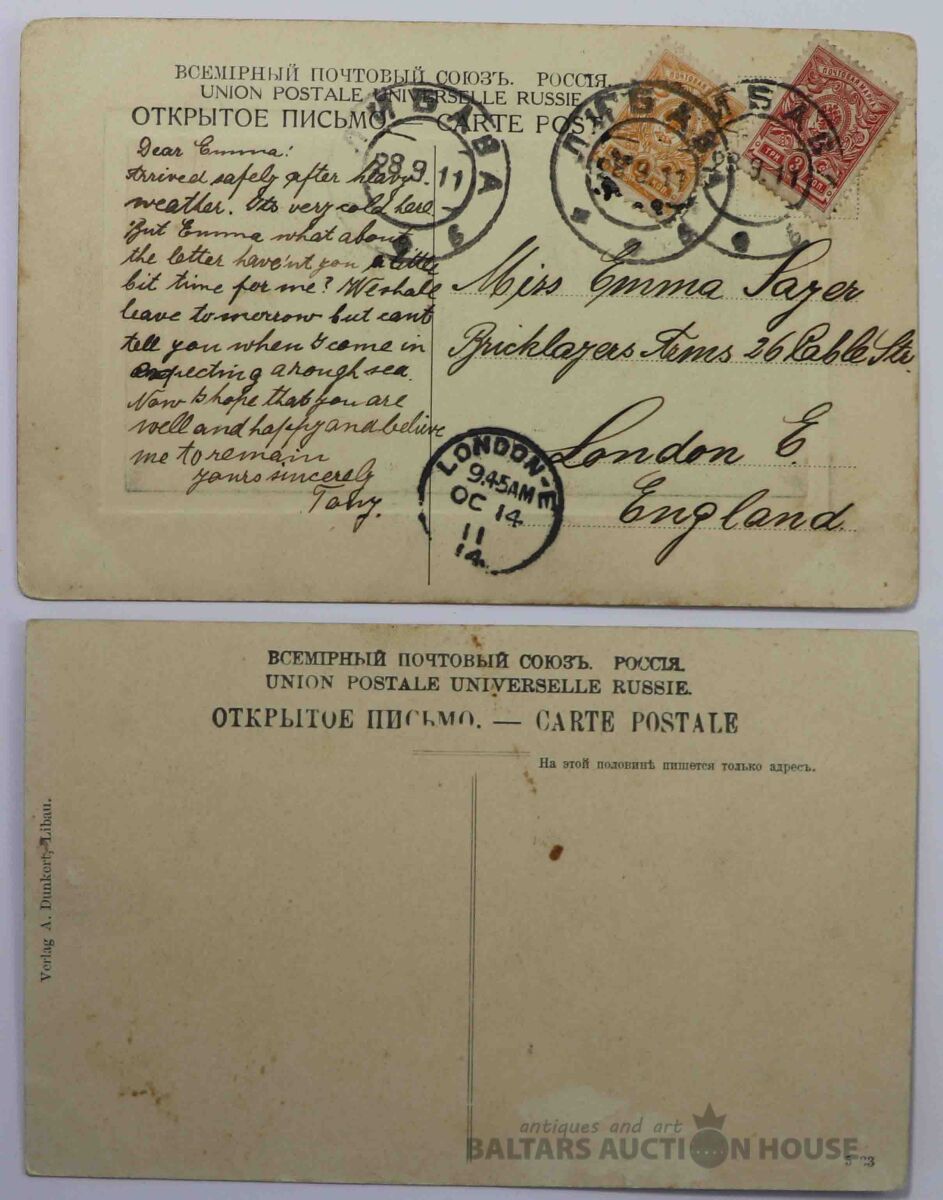 ВСЕМІРНЫЙ ПОЧТОВЫЙ СОЮЗЪ. РОССІЯ.
UNION POSTALE UNIVERSELLE RUSSIE
ОТКРЫТОЕ ПИСЬМО. CARTE POST
ЛИБАВА
28.9.11
ЛИБАВА
9.11
ЛИБАВА
28.9.11
ПОЧТОВАЯ МАРКА
КОП.
ПОЧТОВАЯ МАРКА
ТРИ 3 КОП.
Dear Emma!
Arrived safely after heavy
weather. Its very cold here
But Emma what about
the letter have'nt you a little
bit time for me? We shall
leave tomorrow but cant
tell you when I come in
expecting a rough sea.
Now I hope that you are
well and happy and believe
me to remain
yours sincerely
Tony.
Miss Emma Sayer
Bricklayers Arms 26 Cable Str.
London E.
England.
LONDON-E
9.45AM
OC 14
11
14
ВСЕМІРНЫЙ ПОЧТОВЫЙ СОЮЗЪ. РОССІЯ.
UNION POSTALE UNIVERSELLE RUSSIE.
ОТКРЫТОЕ ПИСЬМО. — CARTE POSTALE
На этой половинѣ пишется только адресъ.
Verlag A. Dunkert, Libau.
antiques and art
BALTARS AUCTION HOUSE